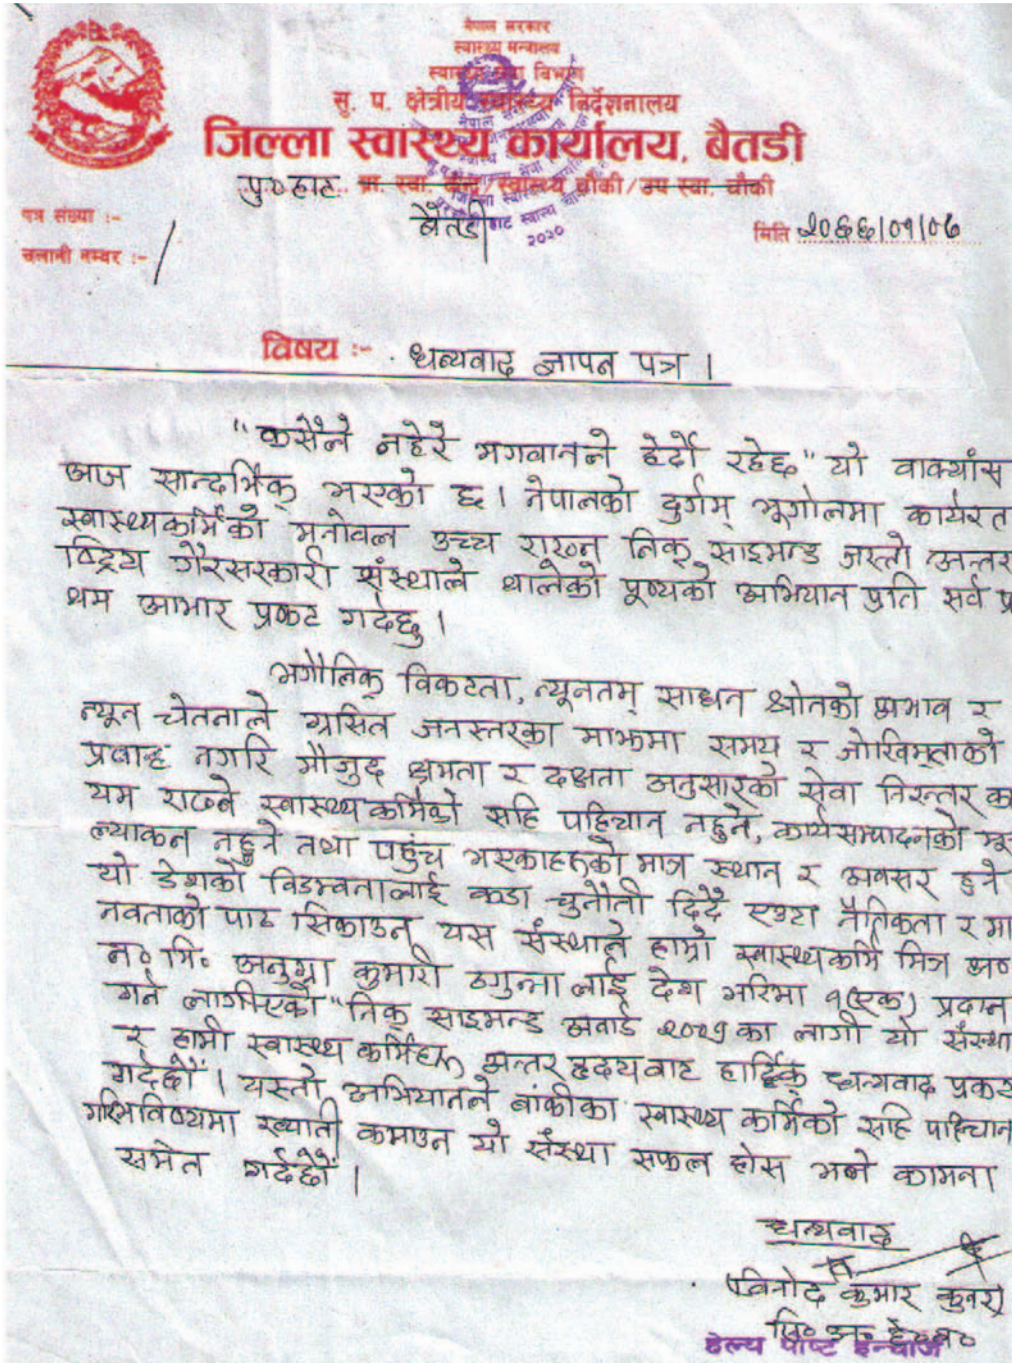 नेपाल सरकार
स्वास्थ्य मन्त्रालय
स्वास्थ्य सेवा विभाग
सु. प. क्षेत्रीय स्वास्थ्य निर्देशनालय
जिल्ला स्वास्थ्य कार्यालय, बैतडी
पु०हाट प्रा. स्वा. केन्द्र/स्वास्थ्य चौकी/उप स्वा. चौकी
बैतडी
पत्र संख्या :-
चलानी नम्बर :-
मिति २०६६/०१/०७
२०२०
विषय :- धन्यवाद ज्ञापन पत्र ।
"कसैले नहेरे भगवानले हेर्दो रहेछ" यो वाक्यांस
आज सान्दर्भिक भएको छ । नेपालको दुर्गम् भूगोलमा कार्यरत
स्वास्थ्यकर्मिको मनोवल उच्च राख्न निक् साइमन्ड जस्तो अन्तर
ष्ट्रिय गैरसरकारी संस्थाले थालेको पूण्यको अभियान प्रति सर्व प्र
थम आभार प्रकट गर्दछु ।
भगौलिक् विकटता, न्यूनतम् साधन श्रोतको प्रभाव र
न्यून चेतनाले ग्रसित जनस्तरका माझमा समय र जोखिमताको
प्रवाह नगरि मौजुद क्षमता र दक्षता अनुसारको सेवा निरन्तर का
यम राख्ने स्वास्थ्यकर्मिको सहि पहिचान नहुने, कार्यसम्पादनको मू
ल्याकन नहुने तथा पहुंच भएकाहरुको मात्र स्थान र अवसर हुने
यो देशको विडम्वनालाई कडा चुनौती दिदै एउटा नैतिकता र मा
नवताको पाठ सिकाउन यस संस्थाले हाम्रो स्वास्थ्यकर्मि मित्र अ०
न० मि० कुमारी ठगुन्ना लाई देश भरिमा १(एक) प्रदान
गर्न लागीएको "निक् साइमन्ड अवार्ड २००९ का लागी यो संस्था
र हामी स्वास्थ्य कर्मिहरु अन्तर हृदयवाट हार्दिक् धन्यवाद प्रकट
गर्दछौं । यस्तो अभियानले बांकीका स्वास्थ्य कर्मिको सहि पहिचान
गरिभविष्यमा ख्याती कमाउन यो संस्था सफल होस भन्ने कामना
समेत गर्दछौं ।
धन्यवाद
(विनोद कुमार कुवर)
सि० अ० हे० व०
हेल्थ पोष्ट इन्चार्ज